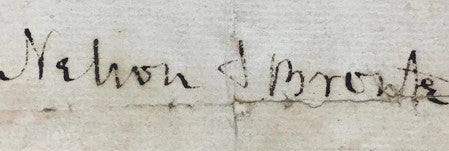 Nelson & Bronte